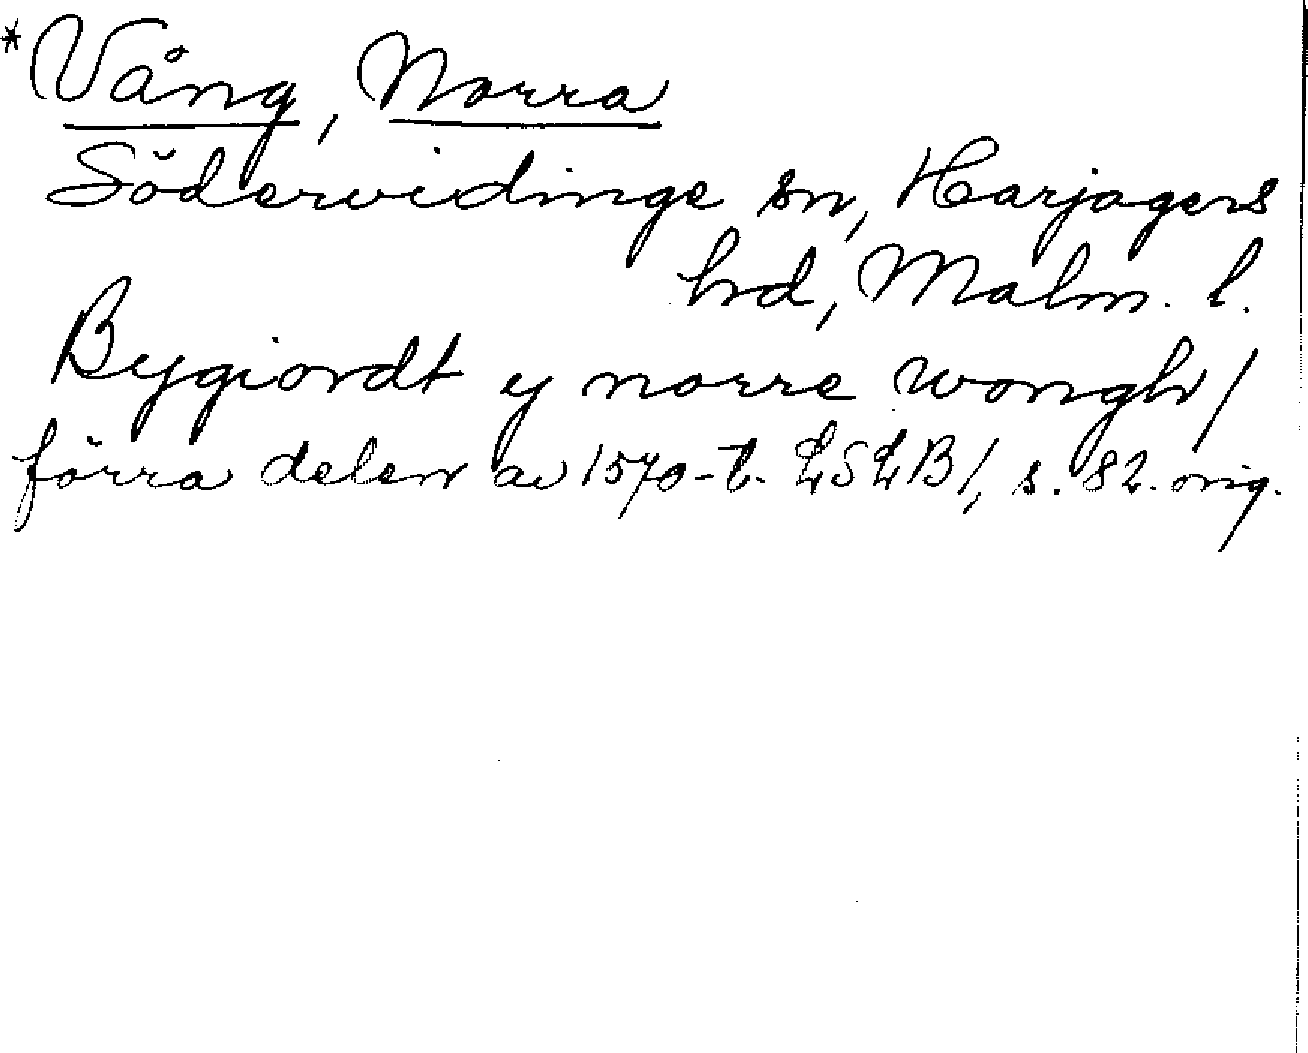 *Vång, Norra
Södervidinge sn, Harjagers
hrd, Malm. l.
Bygiordt y norre wongh/
förra delen av 1570-t. LSLB/, s. 82. orig.